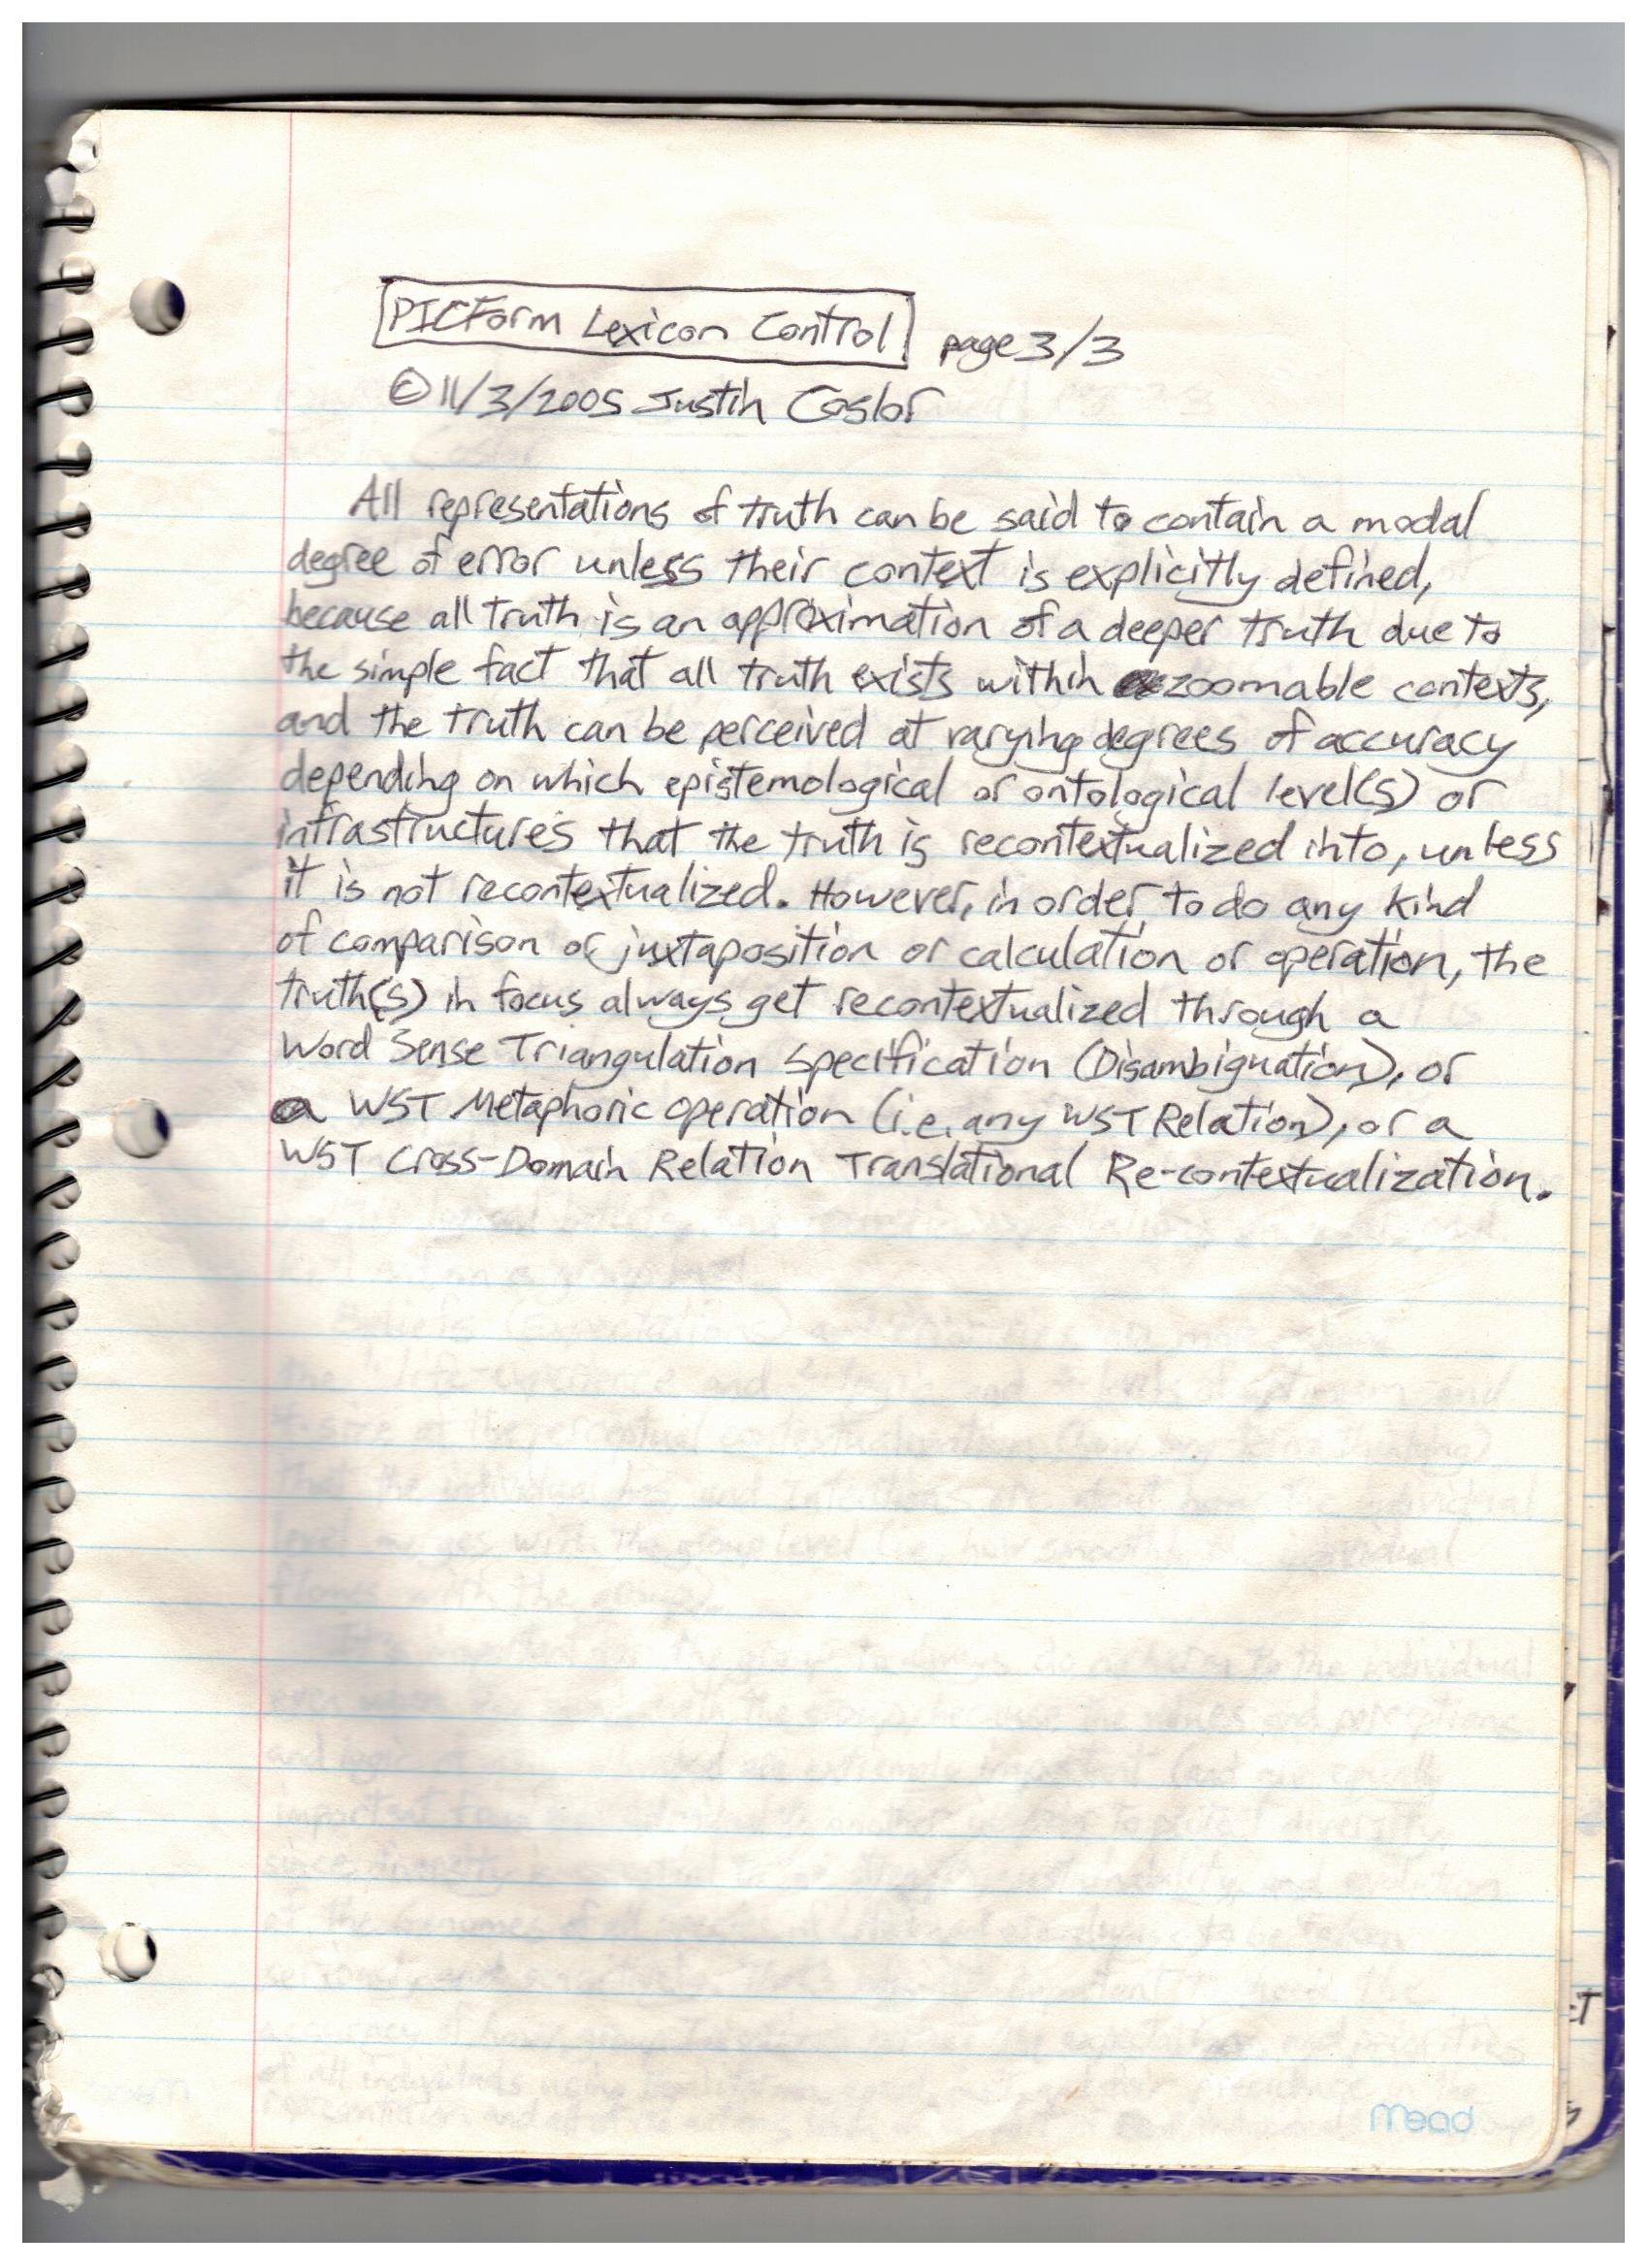 PICForm Lexicon Control page 3/3
© 11/3/2005 Justin Coslor
All representations of truth can be said to contain a modal
degree of error unless their context is explicitly defined,
because all truth is an approximation of a deeper truth due to
the simple fact that all truth exists within zoomable contexts,
and the truth can be perceived at varying degrees of accuracy
depending on which epistemological or ontological level(s) or
infrastructures that the truth is recontextualized into, unless
it is not recontextualized. However, in order to do any kind
of comparison or juxtaposition or calculation or operation, the
truth(s) in focus always get recontextualized through a
Word Sense Triangulation Specification (Disambiguation), or
a WST Metaphoric operation (i.e. any WST Relation), or a
WST Cross-Domain Relation Translational Re-contextualization.
Mead